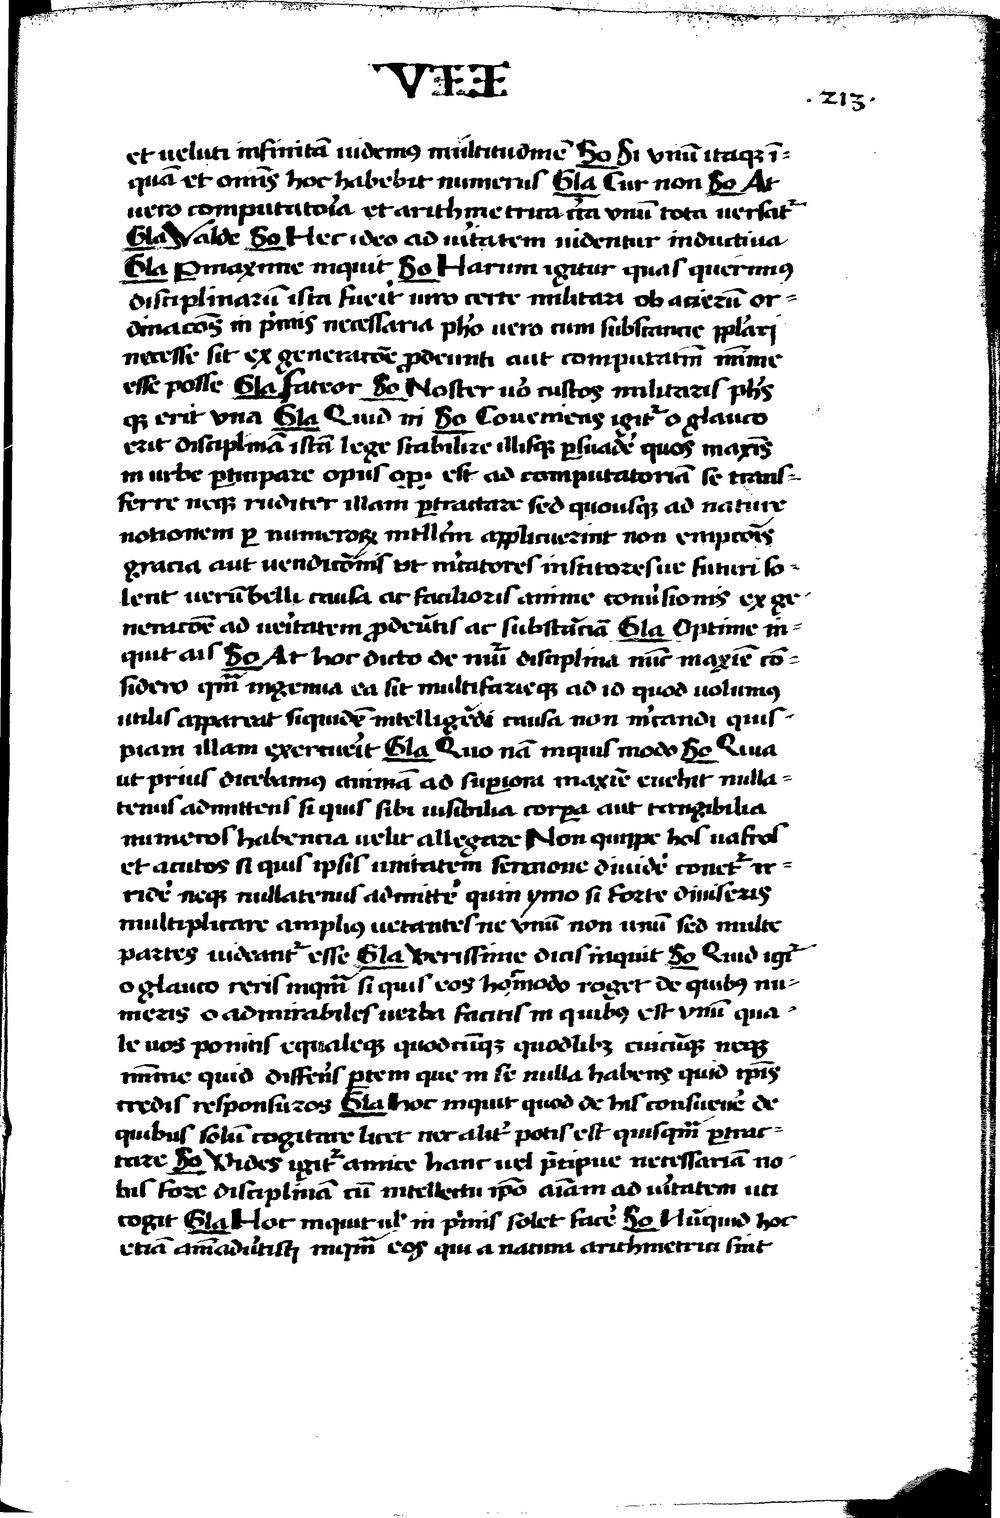 VII
.213.
et ueluti infinitā uidemꝰ multitudinē So Si vnū itaqꝫ ī=
quā et omīs hoc habebit numerus Gla Cur non So At
uero computatoria et arithmetrica circa vnū tota uersat᷑
Gla Valde So Hec ideo ad u᷑itatem uidentur inductiua
Gla Pmaxime inquit So Harum igitur quas querimꝰ
disciplinarū ista fuerit uiro certe militari ob acierū or=
dinacōs in p᷑mis necessaria pho uero cum substancie
necesse sit ex generacōe ꝓdeunti aut computatiū mīme
esse posse Gla fateor So Noster u᷑o custos militaris phs
qꝫ erit vna Gla Quid ni So Coueniens igit᷑ o glauco
erit disciplinā istā lege stabilire illisqꝫ ꝑsuade᷑ quos maxis
in urbe ꝑticipare opus est ad computatoriā se trans=
ferre neqꝫ ruditer illam ꝑtractare sed quousqꝫ ad nature
notionem ꝑ numeroꝝ applicuerint non empcōis
gracia aut uendicōnis ut m᷑catores institoresue futuri so=
lent uerū belli causa ac facilioris anime conu᷑sionis ex ge=
neracōe ad ueritatem ꝓdeūtis ac substācia Gla Optime in=
quit ais So At hoc dicto de disciplina nūc maxīe cō=
sidero qm̄ ingenua ea sit multifarieqꝫ ad id quod uolumꝰ
utilis appareat siquidē intelligēdi causa non m᷑candi quis=
piam illam exercuerit Gla Quo nā inquis modo So Quia
ut prius dicebamꝰ animā ad superiora maxīe euehit nulla=
tenus admittens si quis sibi uisibilia corpora aut tangibilia
numeros habencia uelit allegare Non quippe hos uafros
et acutos si quis ipsis unitatem sermone diuide᷑ conet᷑ ir=
ride᷑ neqꝫ nullatenus admitte᷑ quin ymo si forte diuiseris
multiplicare ampliꝰ uetantes ne vnū non unū sed multe
partes uideant᷑ esse Gla Verissime dicis inquit So Quid igi᷑
o glauco reris inqm̄ si quis eos homodo roget de quibꝰ nu=
meris o admirabiles uerba facitis in quibꝰ est vnū qua=
le uos ponitis equaleqꝫ quodcūqꝫ quodlibꝫ cuicūqꝫ neqꝫ
mīme quid differēs ꝑtem que in se nulla habens quid ipsis
credis responsuros Gla hoc inquit quod de his consueue᷑ de
quibus solū cogitare licet nec alit᷑ potis est quisqm̄ ꝑtrac=
tare So Vides igit᷑ amice hanc uel p᷑cipue necessariā no=
bis fore disciplinā cū intellectu ipō aīam ad u᷑itatem uti
cogit Gla Hoc inquit ul᷑ in p᷑mis solet face᷑ So Nūquid hoc
etiā aīaduertisti inqm̄ eos qui a natura arithmetrici sint